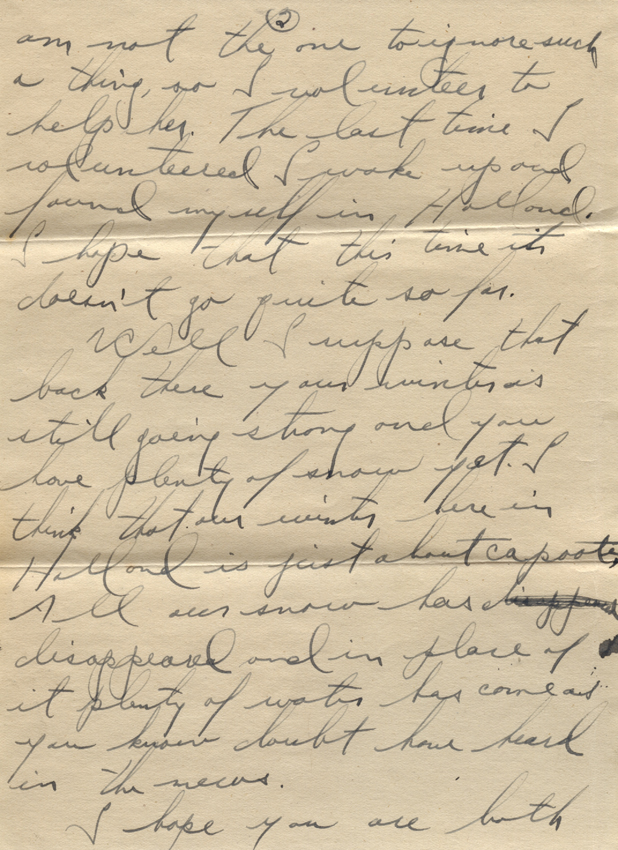 (2)
am not the one to ignore such
a thing, so I volunteer to
help her. The last time I
volunteered I woke up and
found myself in Holland.
I hope that this time it
doesn't go quite so far.
Well I suppose that
back there your winter is
still going strong and you
have plenty of snow yet. I
think that our winter here in
Holland is just about capoot.
All our snow has
disappeared and in place of
it plenty of water has come as
you know doubt have heard
in the news.
I hope you are both